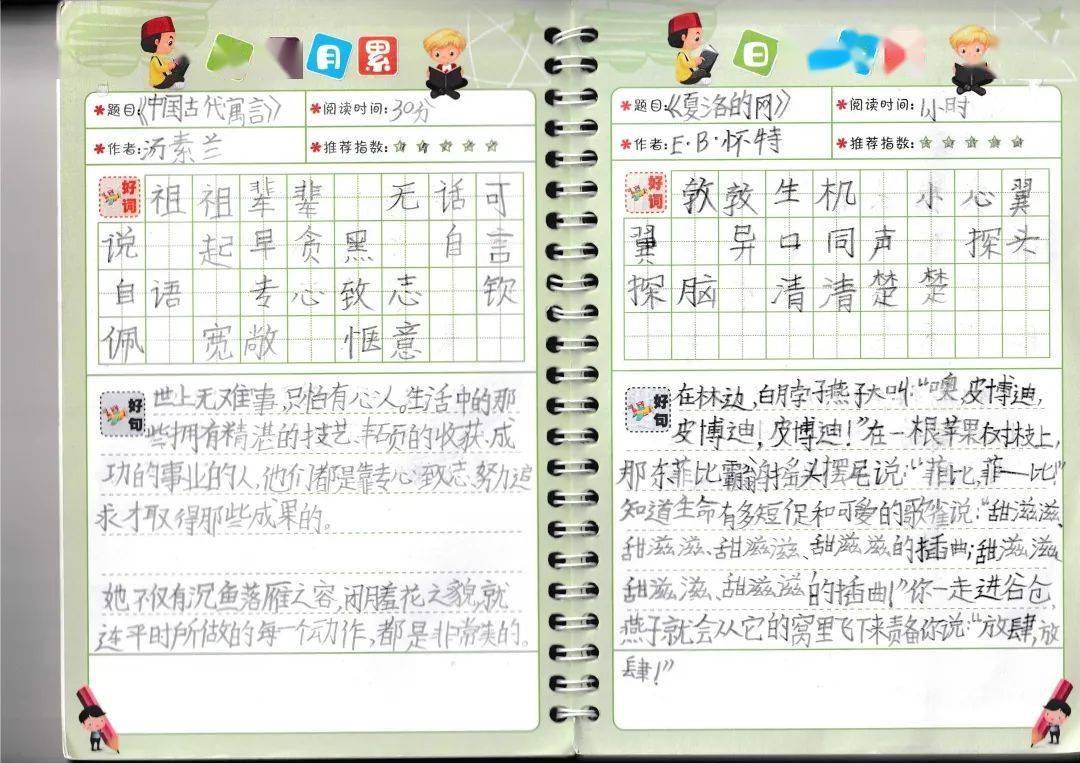 月累
题目:《中国古代寓言》
阅读时间:30分
作者:汤素兰
推荐指数:
好词
祖祖辈辈 无话可
说 起早贪黑 自言
自语 专心致志 钦
佩 宽敞 惬意
好句
世上无难事,只怕有心人。生活中的那
些拥有精湛的技艺、丰硕的收获、成
功的事业的人,他们都是靠专心致志、努力追
求才取得那些成果的。
她不仅有沉鱼落雁之容,闭月羞花之貌,就
连平时所做的每一个动作,都是非常美的。
日
题目:《夏洛的网》
阅读时间:1小时
作者:E·B·怀特
推荐指数:
好词
敦敦生机 小心翼
翼 异口同声 探头
探脑 清清楚楚
好句
在林边,白脖子燕子大叫:“噢,皮博迪,
皮博迪,皮博迪!”在一根苹果树枝上,
那东菲比霸鹟摇头摆尾说:“菲比,菲——比!”
知道生命有多短促和可爱的歌雀说:“甜滋滋、
甜滋滋、甜滋滋、甜滋滋的插曲;甜滋滋、
甜滋滋、甜滋滋的插曲!”你一走进谷仓,
燕子就会从它的窝里飞下来责备你说:“放肆,放
肆!”